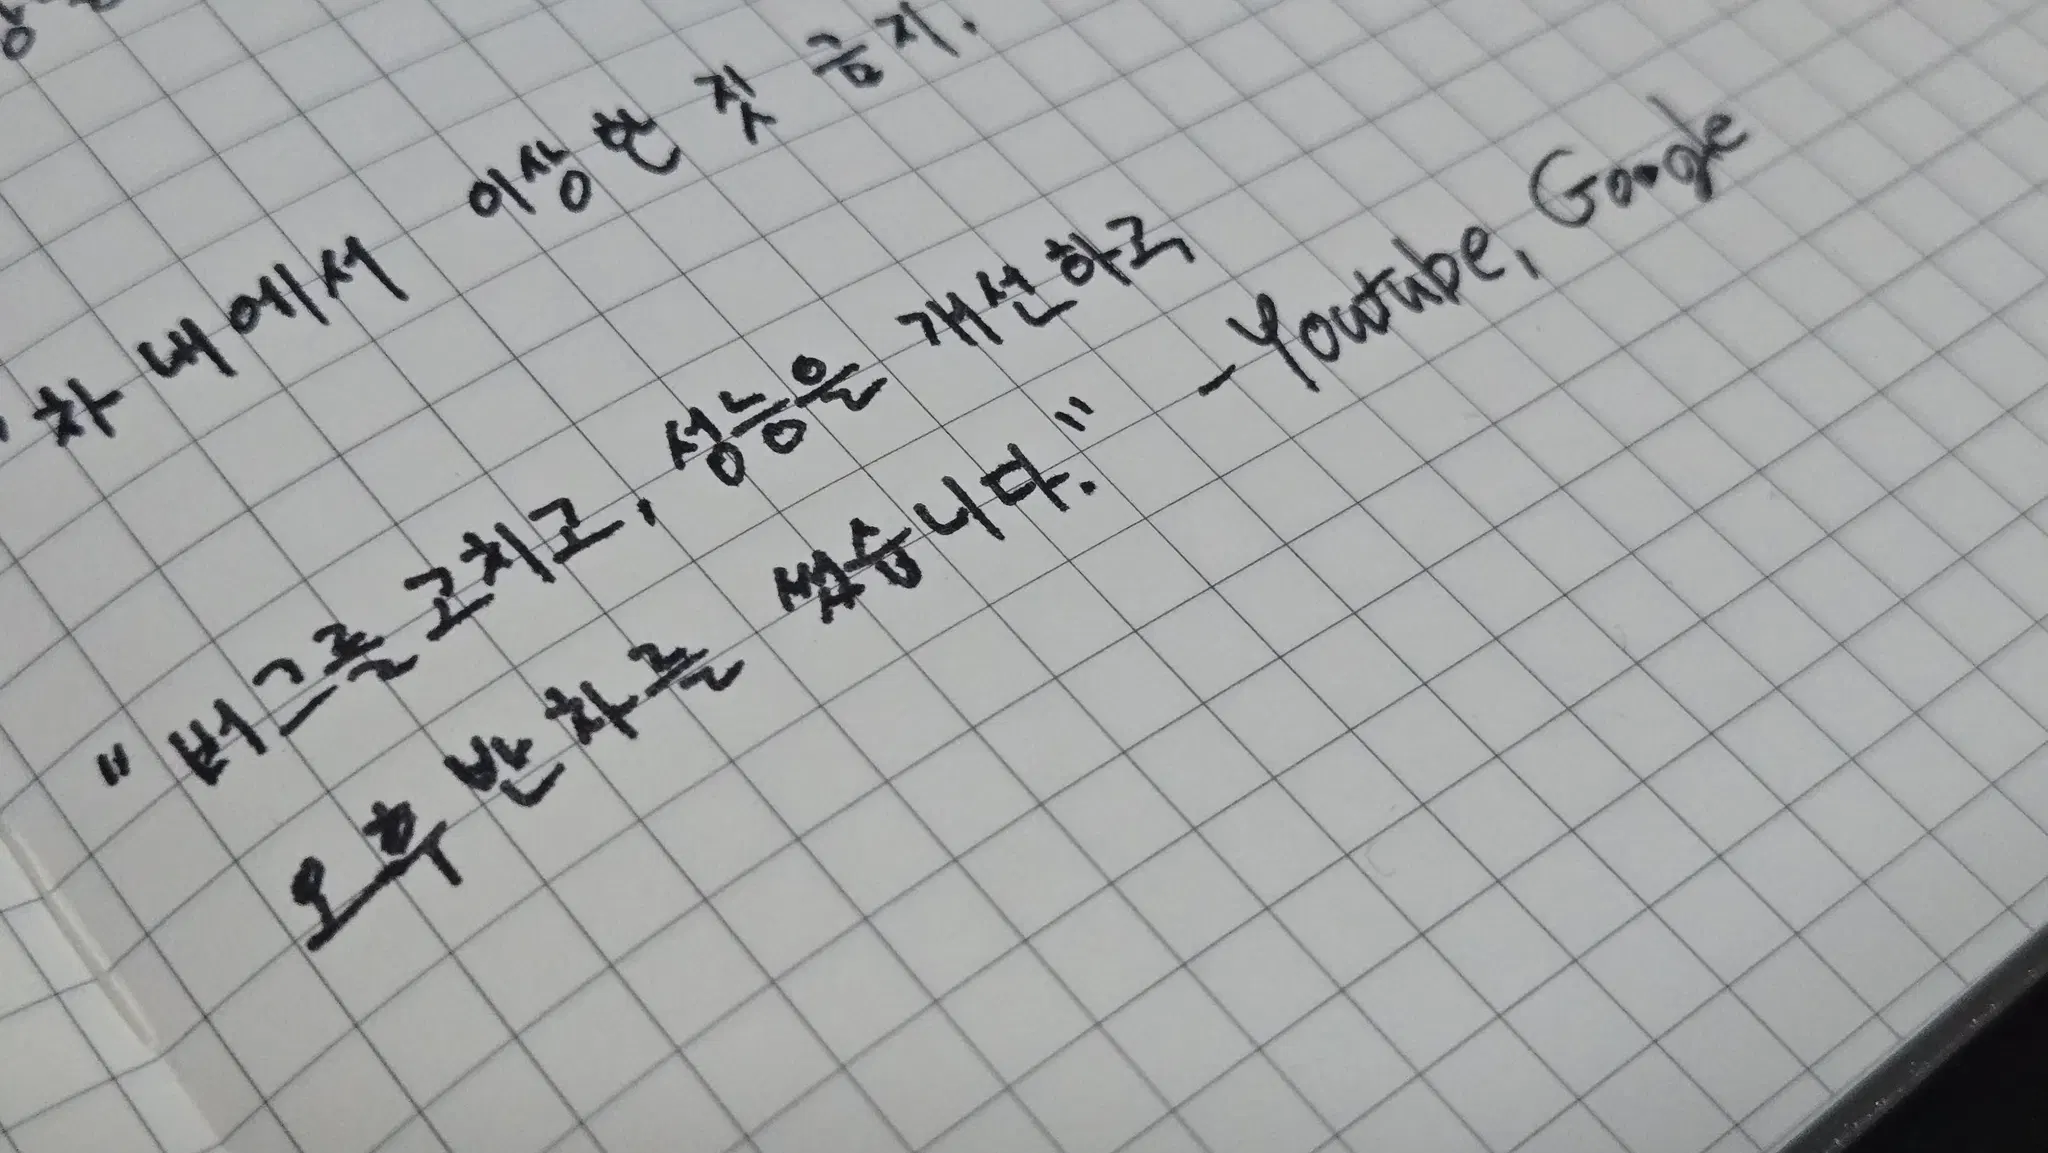 차 내에서 이상한 짓 금지.
"버그를 고치고, 성능을 개선하고
오후 반차를 썼습니다." - Youtube, Google